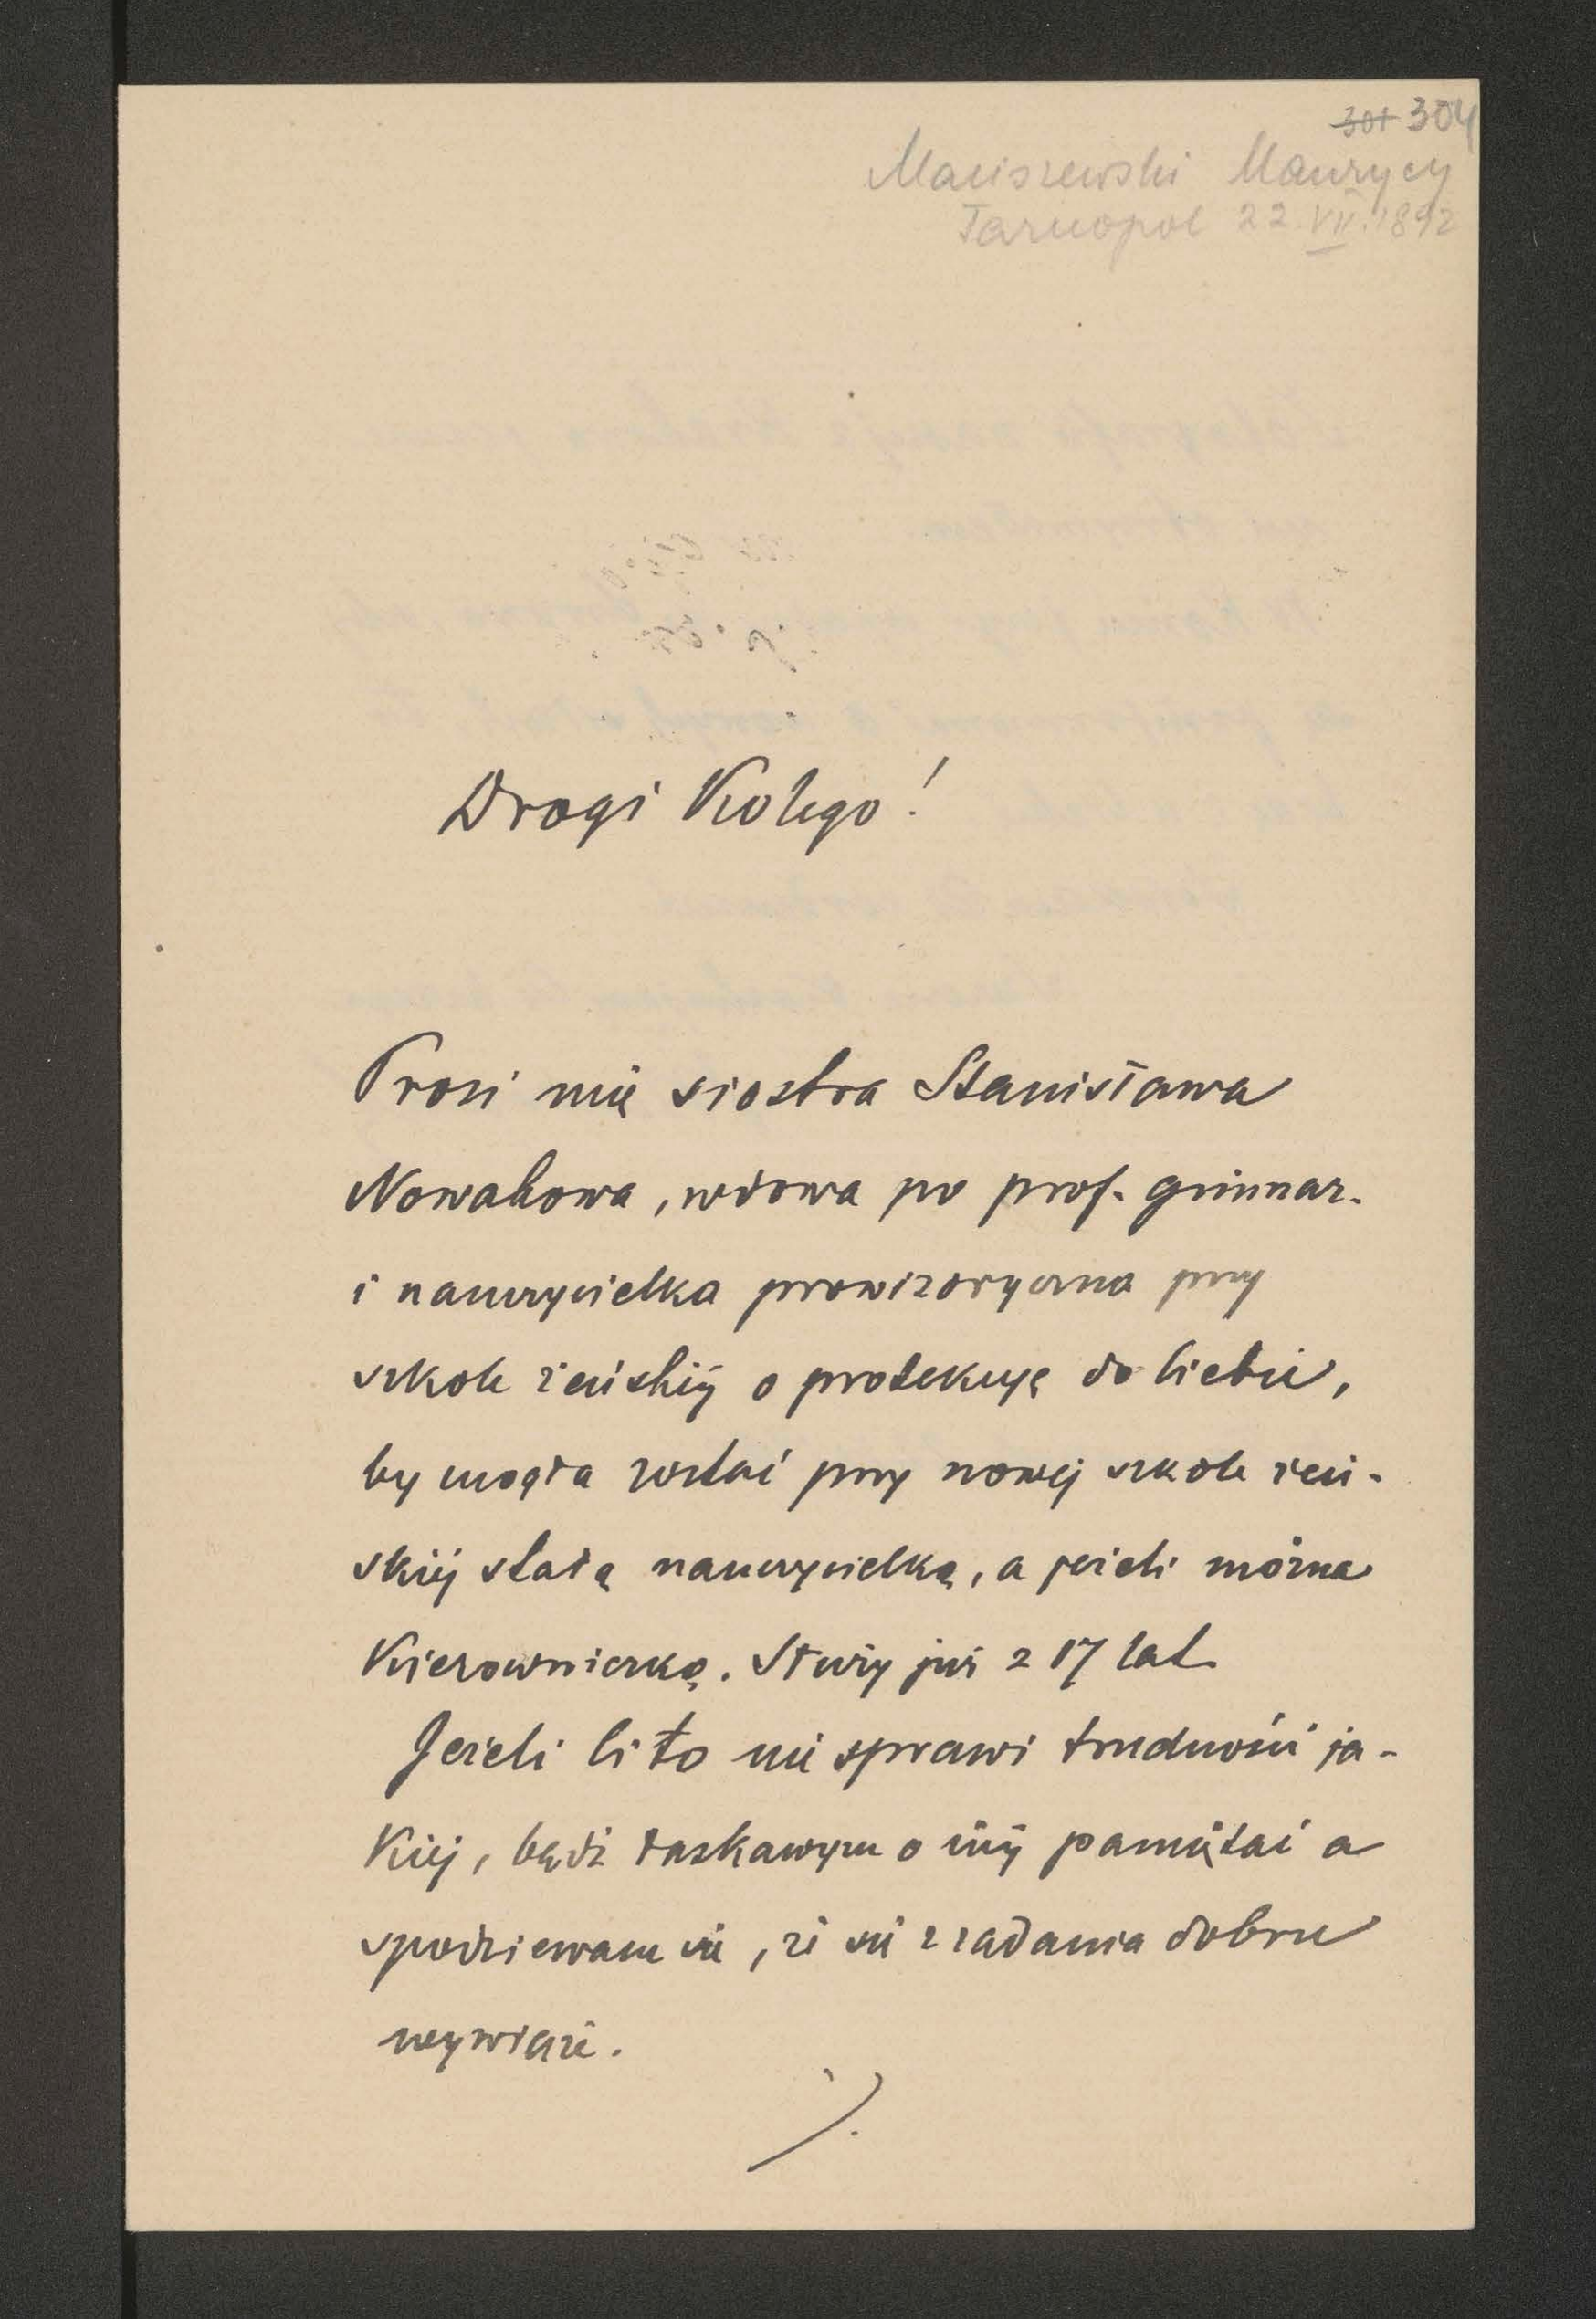 301 304
Maciszewski Maurycy
Tarnopol 22.VII.1892
Drogi Kolego!
Prosi mię siostra Stanisława
Nowakowa, wdowa po prof. gimnaz.
i nauczycielka prowizoryczna przy
szkole żeńskiéj o protekcyę do Ciebie,
by mogła zostać przy nowej szkole żeń-
skiéj stałą nauczycielką, a jeżeli można
Kierowniczką. Służy już z 17 lat.
Jeżeli Ci to nie sprawi trudności ja-
kiéj, bądź łaskawym o niéj pamiętać a
spodziewam się, że się z zadania dobrze
wywiąże.